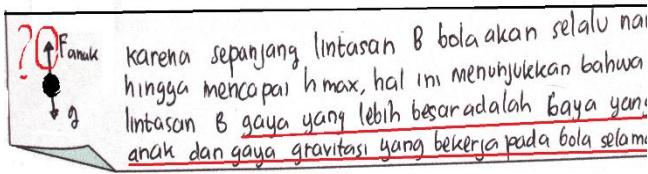 ?
F anak
g
Karena sepanjang lintasan B bola akan selalu nai
hingga mencapai hmax, hal ini menunjukkan bahwa
lintasan B gaya yang lebih besar adalah Gaya yang
anak dan gaya gravitasi yang bekerja pada bola selama